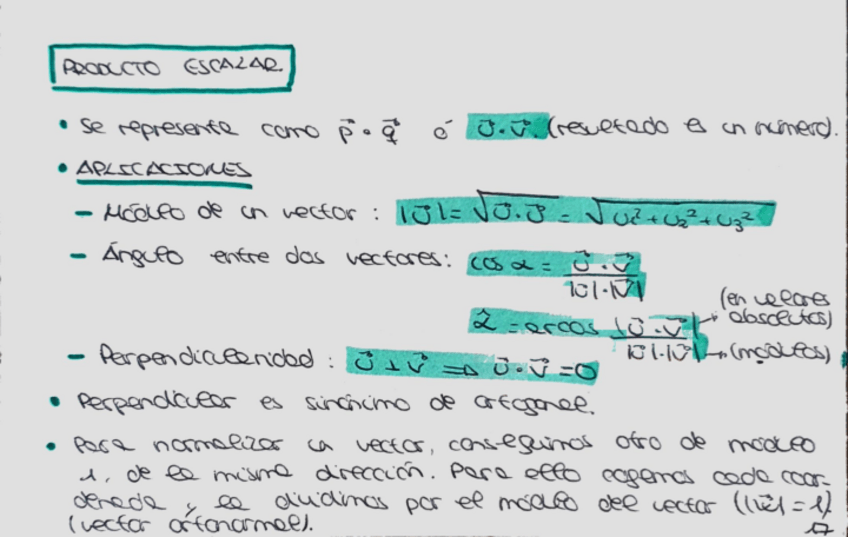 PRODUCTO ESCALAR
• Se representa como p⃗ · q⃗ ó u⃗ · v⃗ (resultado es un número).
• APLICACIONES
– Módulo de un vector : |u⃗| = √u⃗ · u⃗ = √u₁² + u₂² + u₃²
– Ángulo entre dos vectores: cos α = u⃗ · v⃗ / |u⃗| · |v⃗|
α̂ = arcos |u⃗ · v⃗| / |u⃗| · |v⃗| → (en valores absolutos) → (módulos)
– Perpendicularidad : u⃗ ⊥ v⃗ ⇒ u⃗ · v⃗ = 0
• Perpendicular es sinónimo de ortogonal.
• Para normalizar un vector, conseguimos otro de módulo
1, de la misma dirección. Para ello cogemos cada coor-
denada y la dividimos por el módulo del vector (|u⃗| = 1)
(vector ortonormal).